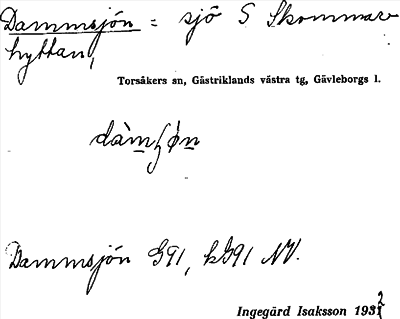 Dammsjön = sjö S Skommare
hyttan,
Torsåkers sn, Gästriklands västra tg, Gävleborgs l.
Dammsjön G91, kG91 NV.
Ingegärd Isaksson 1932